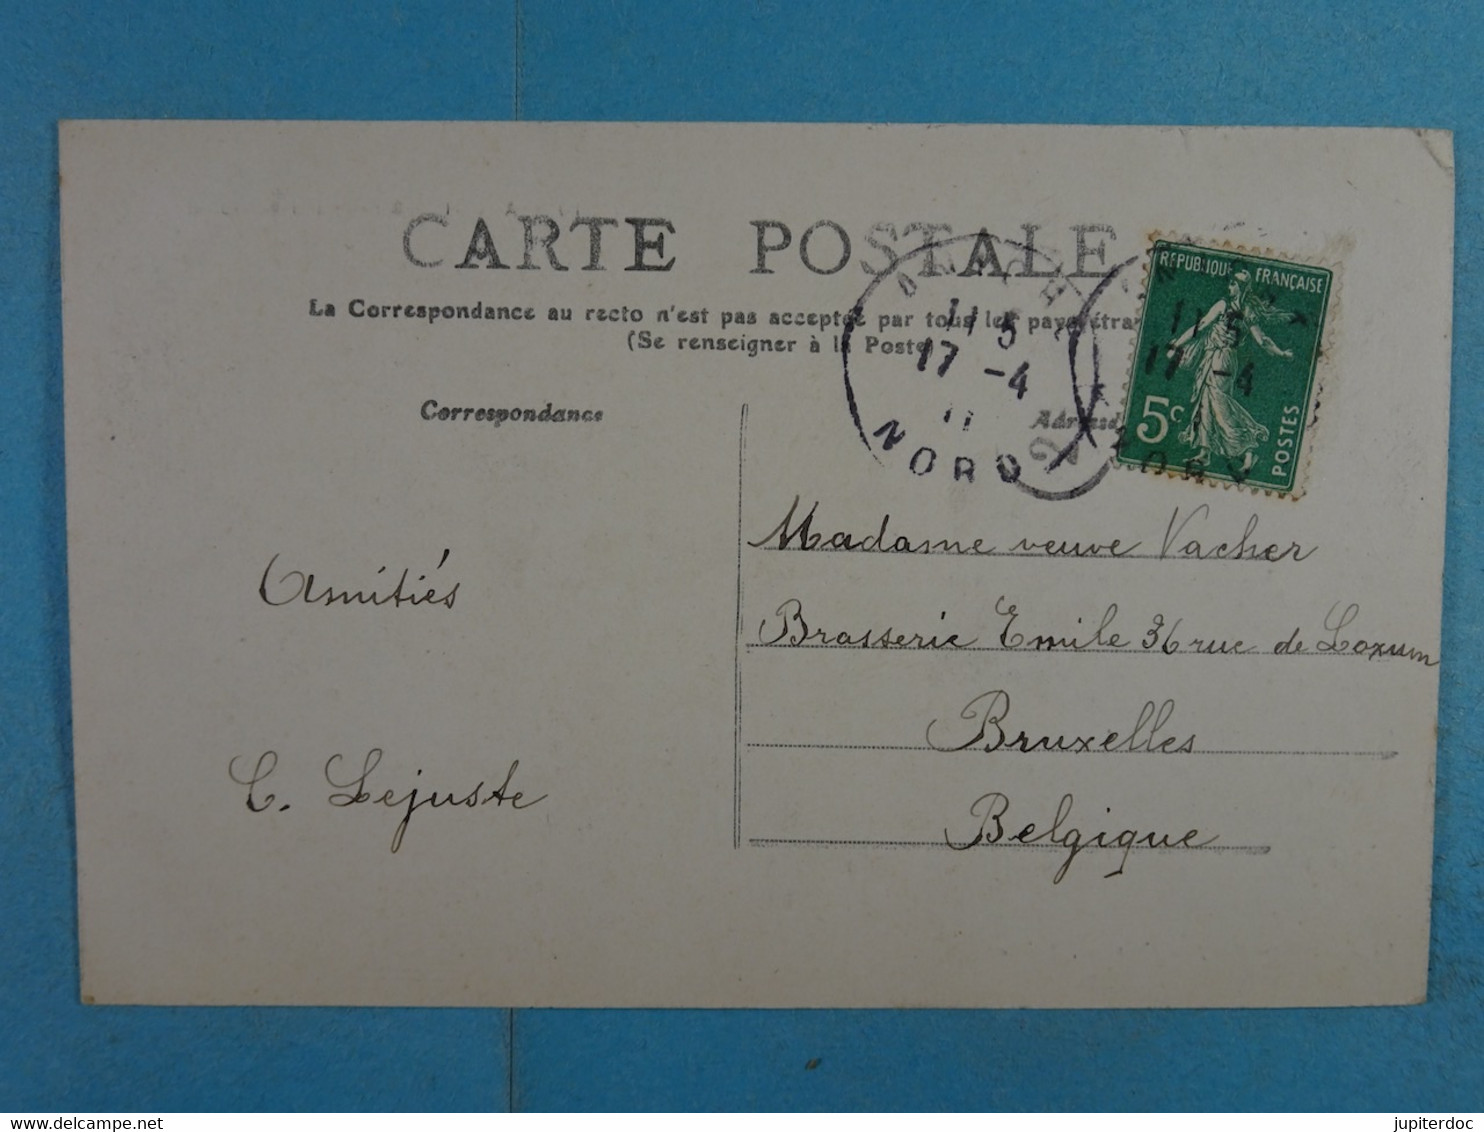 CARTE POSTALE
La Correspondance au recto n'est pas acceptée par tous les pays étra
(Se renseigner à la Poste
Correspondance
11 5
17 -4
11
NORD
RÉPUBLIQUE FRANÇAISE
11 5
17 -4
5c
POSTES
Madame veuve Vacher
Brasserie Emile 36 rue de Loxum
Bruxelles
Belgique
Amitiés
C. Lejuste
www.delcampe.net
jupiterdoc